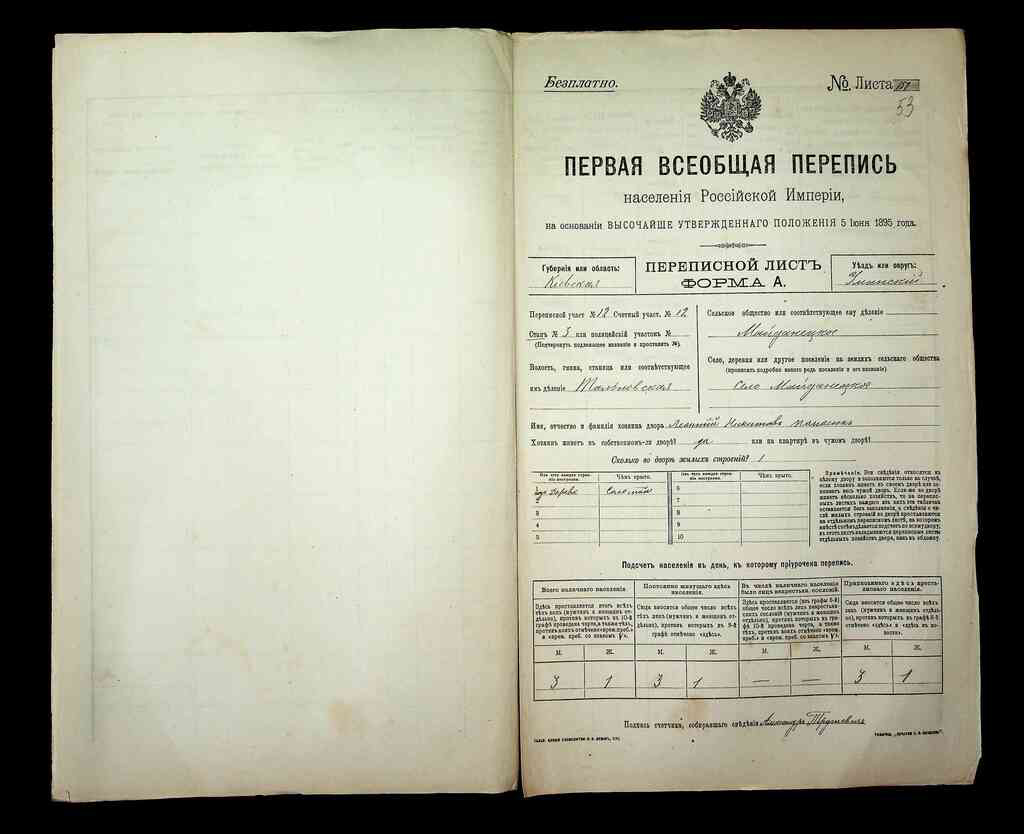 Безплатно.
№ Листа
53
ПЕРВАЯ ВСЕОБЩАЯ ПЕРЕПИСЬ
населенія Россійской Имперіи,
на основаніи ВЫСОЧАЙШЕ УТВЕРЖДЕННАГО ПОЛОЖЕНІЯ 5 Іюня 1895 года.
Губернія или область:
Кіевская
ПЕРЕПИСНОЙ ЛИСТЪ
ФОРМА А.
Уѣздъ или округъ:
Уманскій
Переписной участ №12 Счетный участ. № 12
Станъ № 5 или полицейскій участокъ №
(Подчеркнуть подлежащее названіе и проставить №).
Волость, гмина, станица или соотвѣтствующее
имъ дѣленіе Тальновская
Сельское общество или соотвѣтствующее ему дѣленіе
Майданецкое
Село, деревня или другое поселеніе на земляхъ сельскаго общества
(прописать подробно какого рода поселеніе и его названіе)
Село Майданецкое
Имя, отчество и фамилія хозяина двора Леонтій Никитовъ
Хозяинъ живетъ въ собственномъ-ли дворѣ? да или на квартирѣ въ чужомъ дворѣ?
Сколько во дворѣ жилыхъ строеній? 1
Изъ чего каждое строеніе построено.
Чѣмъ крыто.
Изъ чего каждое строеніе построено.
Чѣмъ крыто.
изъ дерева соломой
6
2
7
3
8
4
9
5
10
Примѣчаніе. Эти свѣдѣнія относятся къ
цѣлому двору и заполняются только въ случаѣ,
если хозяинъ живетъ въ своемъ дворѣ или за-
нимаетъ весь чужой дворъ. Если-же во дворѣ
живетъ нѣсколько хозяйствъ, то на перепис-
ныхъ листахъ каждаго изъ нихъ эта табличка
оставляется безъ заполненія, а свѣдѣнія о чи-
слѣ жилыхъ строеній во дворѣ проставляются
на отдѣльномъ переписномъ листѣ, на которомъ
Подсчетъ населенія въ день, къ которому пріурочена перепись.
Всего наличнаго населенія.
Постоянно живущаго здѣсь
населенія.
Въ числѣ наличнаго населенія
было лицъ некрестьян. сословій.
Приписаннаго здѣсь кресть-
янскаго населенія.
Здѣсь проставляется итогъ всѣхъ
тѣхъ лицъ (мужчинъ и женщинъ от-
дѣльно), противъ которыхъ въ 10-й
графѣ проведена черта, а также тѣхъ,
противъ коихъ отмѣчено «врем. преб.»
и «врем. преб. со знакомъ V».
Сюда вносится общее число всѣхъ
тѣхъ лицъ (мужчинъ и женщинъ от-
дѣльно), противъ которыхъ въ 9-й
графѣ отмѣчено «здѣсь».
Здѣсь проставляется (изъ графы 4-й)
общее число всѣхъ лицъ некрестьян-
скихъ сословій (мужчинъ и женщинъ
отдѣльно), противъ которыхъ въ гра-
фѣ 10-й проведена черта, а также
тѣхъ, противъ коихъ отмѣчено «врем.
преб.» и «врем. преб. со знакомъ V».
Сюда вносится общее число всѣхъ
лицъ (мужчинъ и женщинъ отдѣль-
но), противъ которыхъ въ графѣ 8-й
отмѣчено «здѣсь» и «здѣсь въ во-
лости».
М. Ж. М. Ж. М. Ж. М. Ж.
3 1 3 1 — — 3 1
Подпись счетчика, собиравшаго свѣдѣнія Александръ